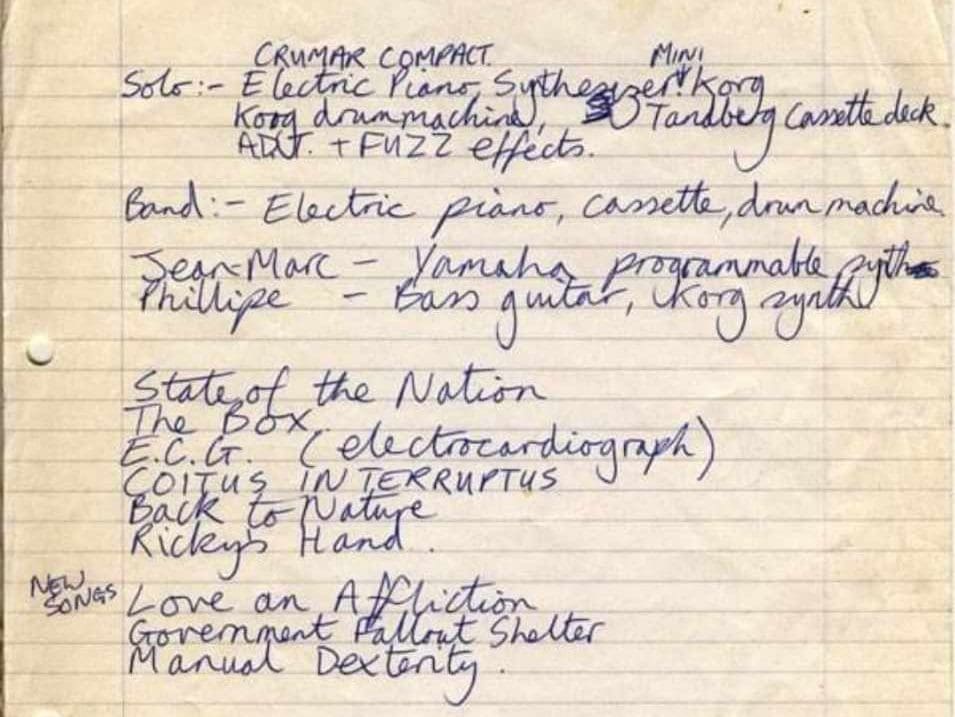 CRUMAR COMPACT. MINI
Solo:- Electric Piano, Sythesizer Korg
Korg drummachine, Tandberg cassette deck.
ADT. + FUZZ effects.
Band:- Electric piano, cassette, drum machine.
Jean-Marc - Yamaha programmable syth
Phillipe - Bass guitar, Korg synth
State of the Nation
The Box.
E.C.G. (electrocardiograph)
COITUS INTERRUPTUS
Back to Nature
Ricky's Hand.
NEW
SONGS
Love an Affliction
Government Fallout Shelter
Manual Dexterity.